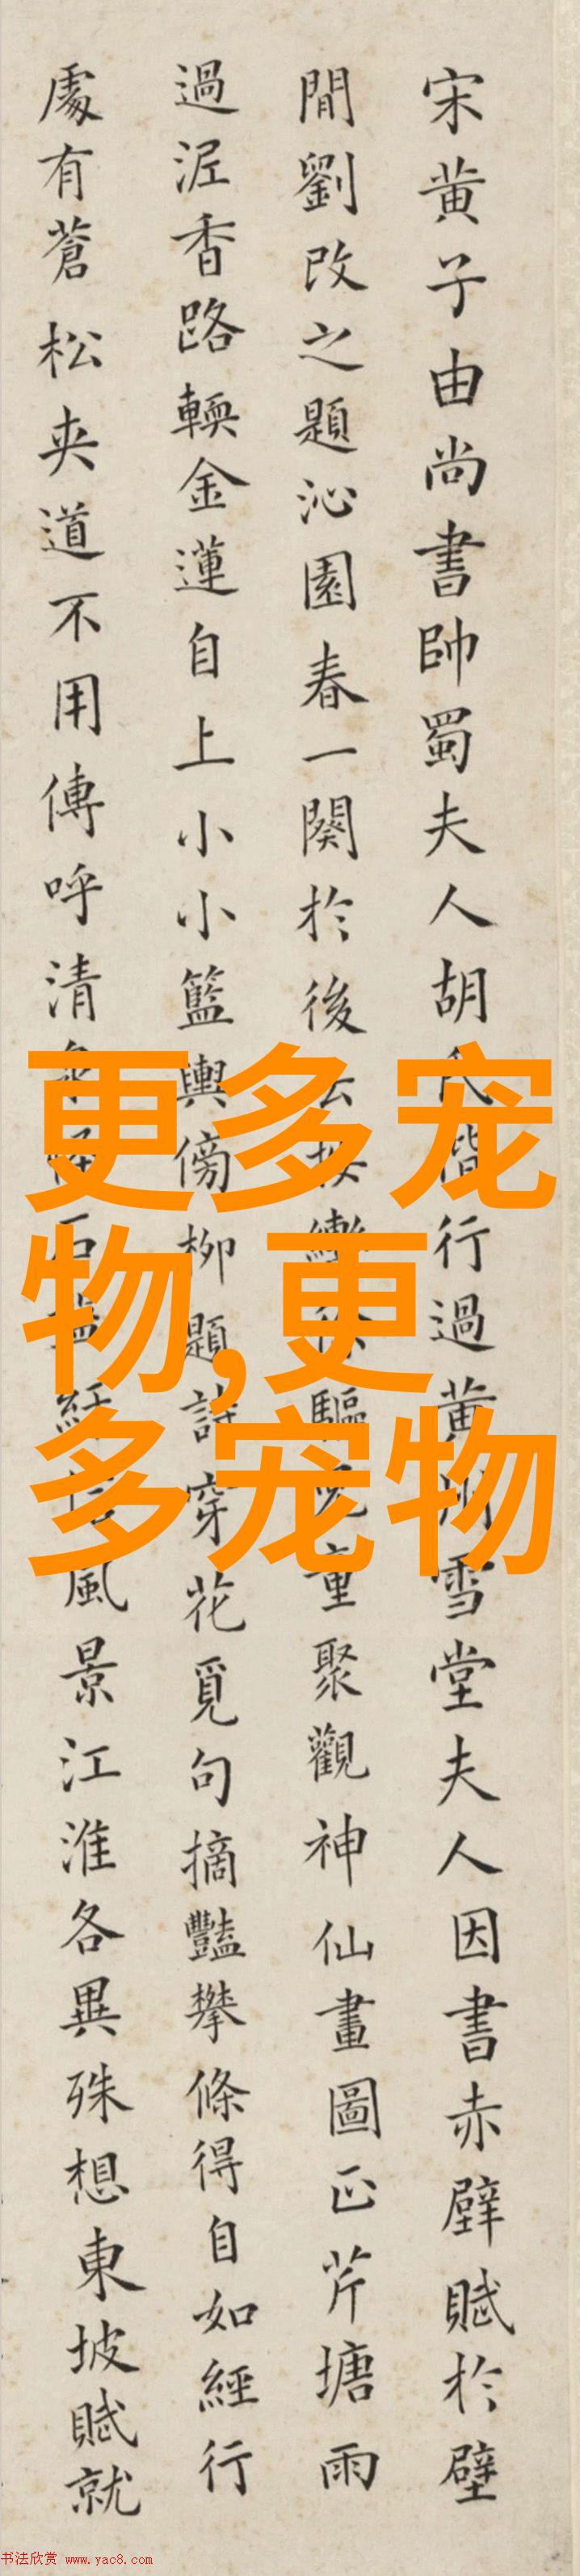 宋黄子由尚書帥蜀夫人胡氏偕行過黄州雪堂夫人因書赤壁賦於壁
間劉改之題沁園春一闋於後云按轡徐驅兒童聚觀神仙畫圖正芹塘雨
過泥香路輭金蓮自上小小籃輿傍柳題詩穿花覓句摘豔攀條得自如經行
處有蒼松夾道不用傳呼清泉怪石盤紆信風景江淮各異殊想東坡賦就
更多宠
物,更
多宠物
书法欣赏 www.yac8.com